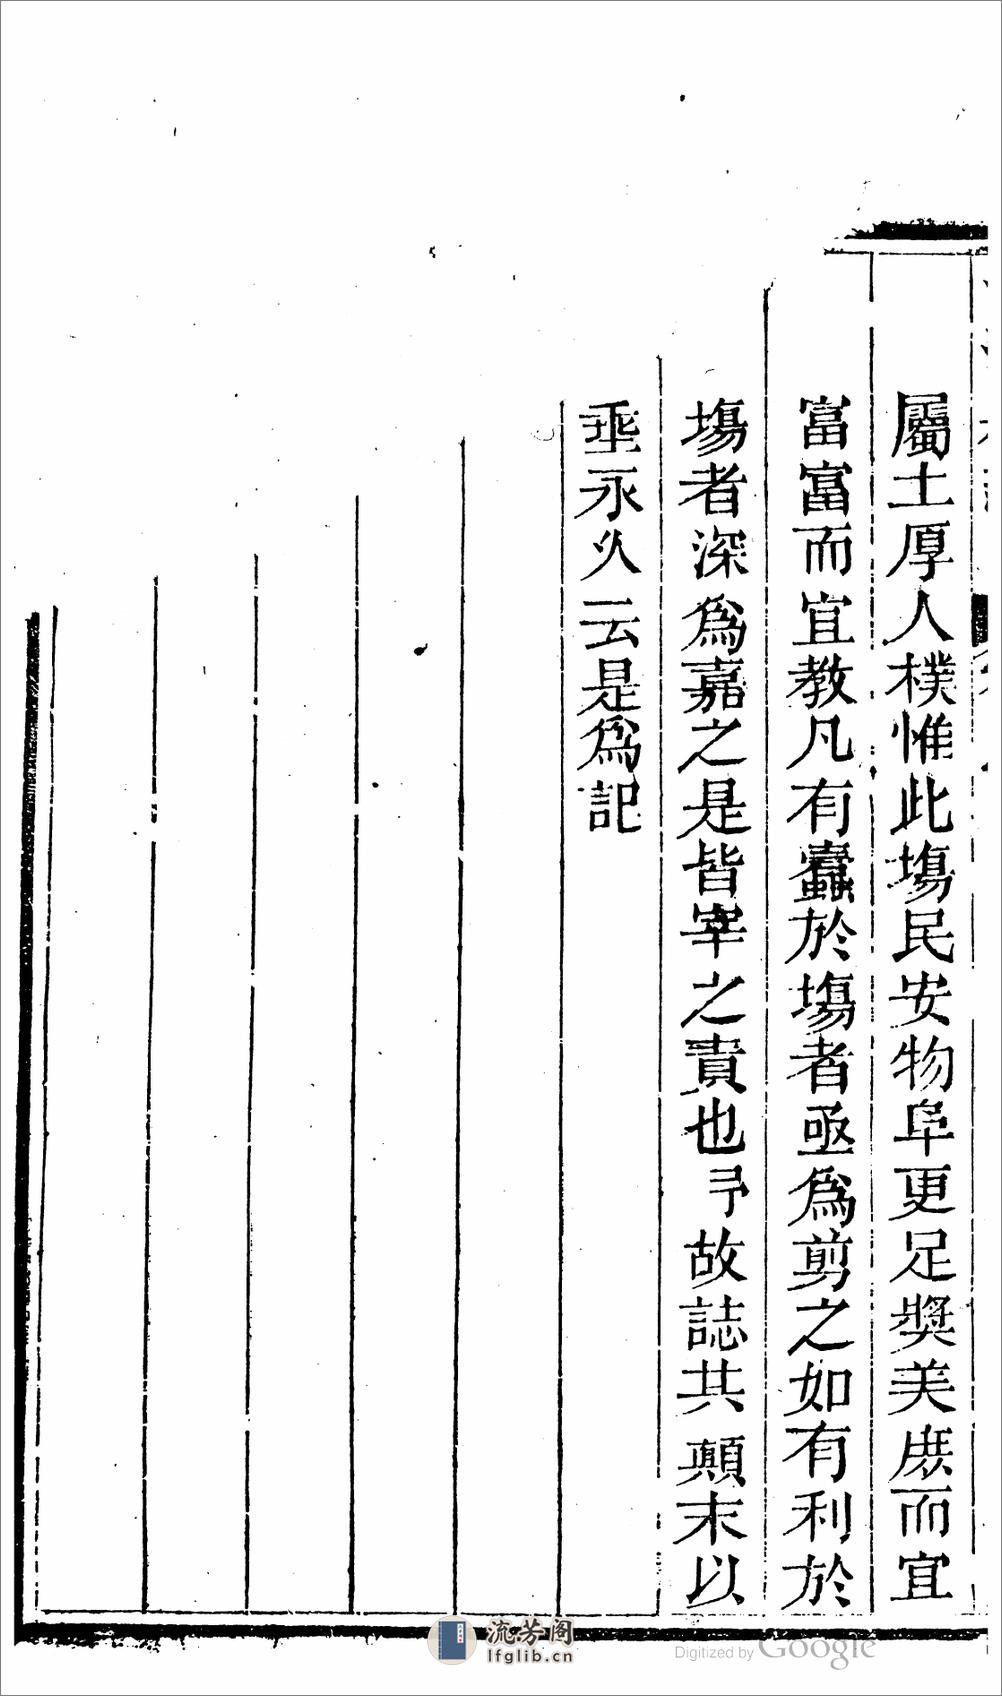 屬土厚人樸惟此塲民安物阜更足奬美庶而宜
富富而宜教凡有蠹於塲者亟爲剪之如有利於
塲者深爲嘉之是皆宰之責也予故誌其顛末以
垂永久云是爲記
流芳阁
lfglib.cn
Digitized by Google